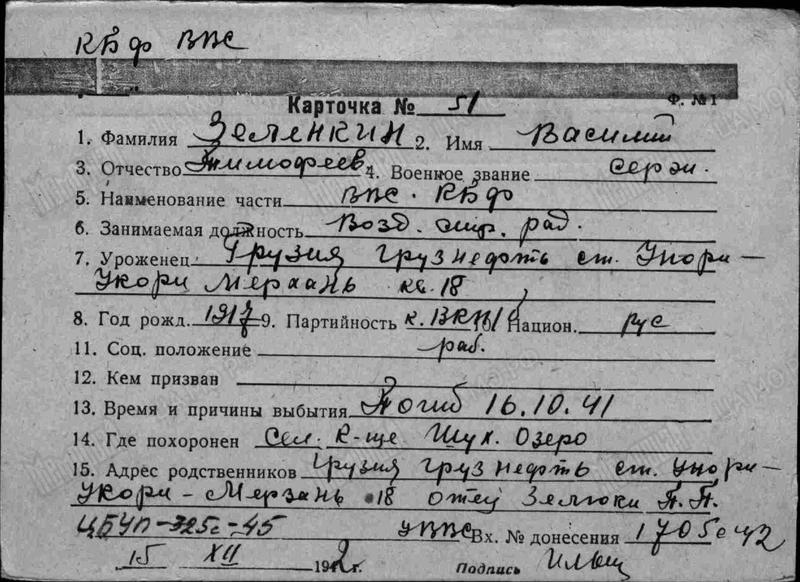 КБФ ВВС
Карточка № 51
Ф. №1
1. Фамилия Зеленкин 2. Имя Василий
3. Отчество Тимофеев 4. Военное звание серж.
5. Наименование части ВВС. КБФ
6. Занимаемая должность Возд. стр. рад.
7. Уроженец Грузия Грузнефть ст. Упори-
Укори Мерзань кв. 18
8. Год рожд. 1917 9. Партийность к. ВКП/б 10. Национ. рус
11. Соц. положение раб.
12. Кем призван
13. Время и причины выбытия Погиб 16.10.41
14. Где похоронен Сел. К-ще Шук. Озеро
15. Адрес родственников Грузия Грузнефть ст. Упори-
Укори-Мерзань 18 отец П. П.
ЦБУП-325с-45 УВВС Вх. № донесения 1705с 42
15 XII 1942 г. Подпись